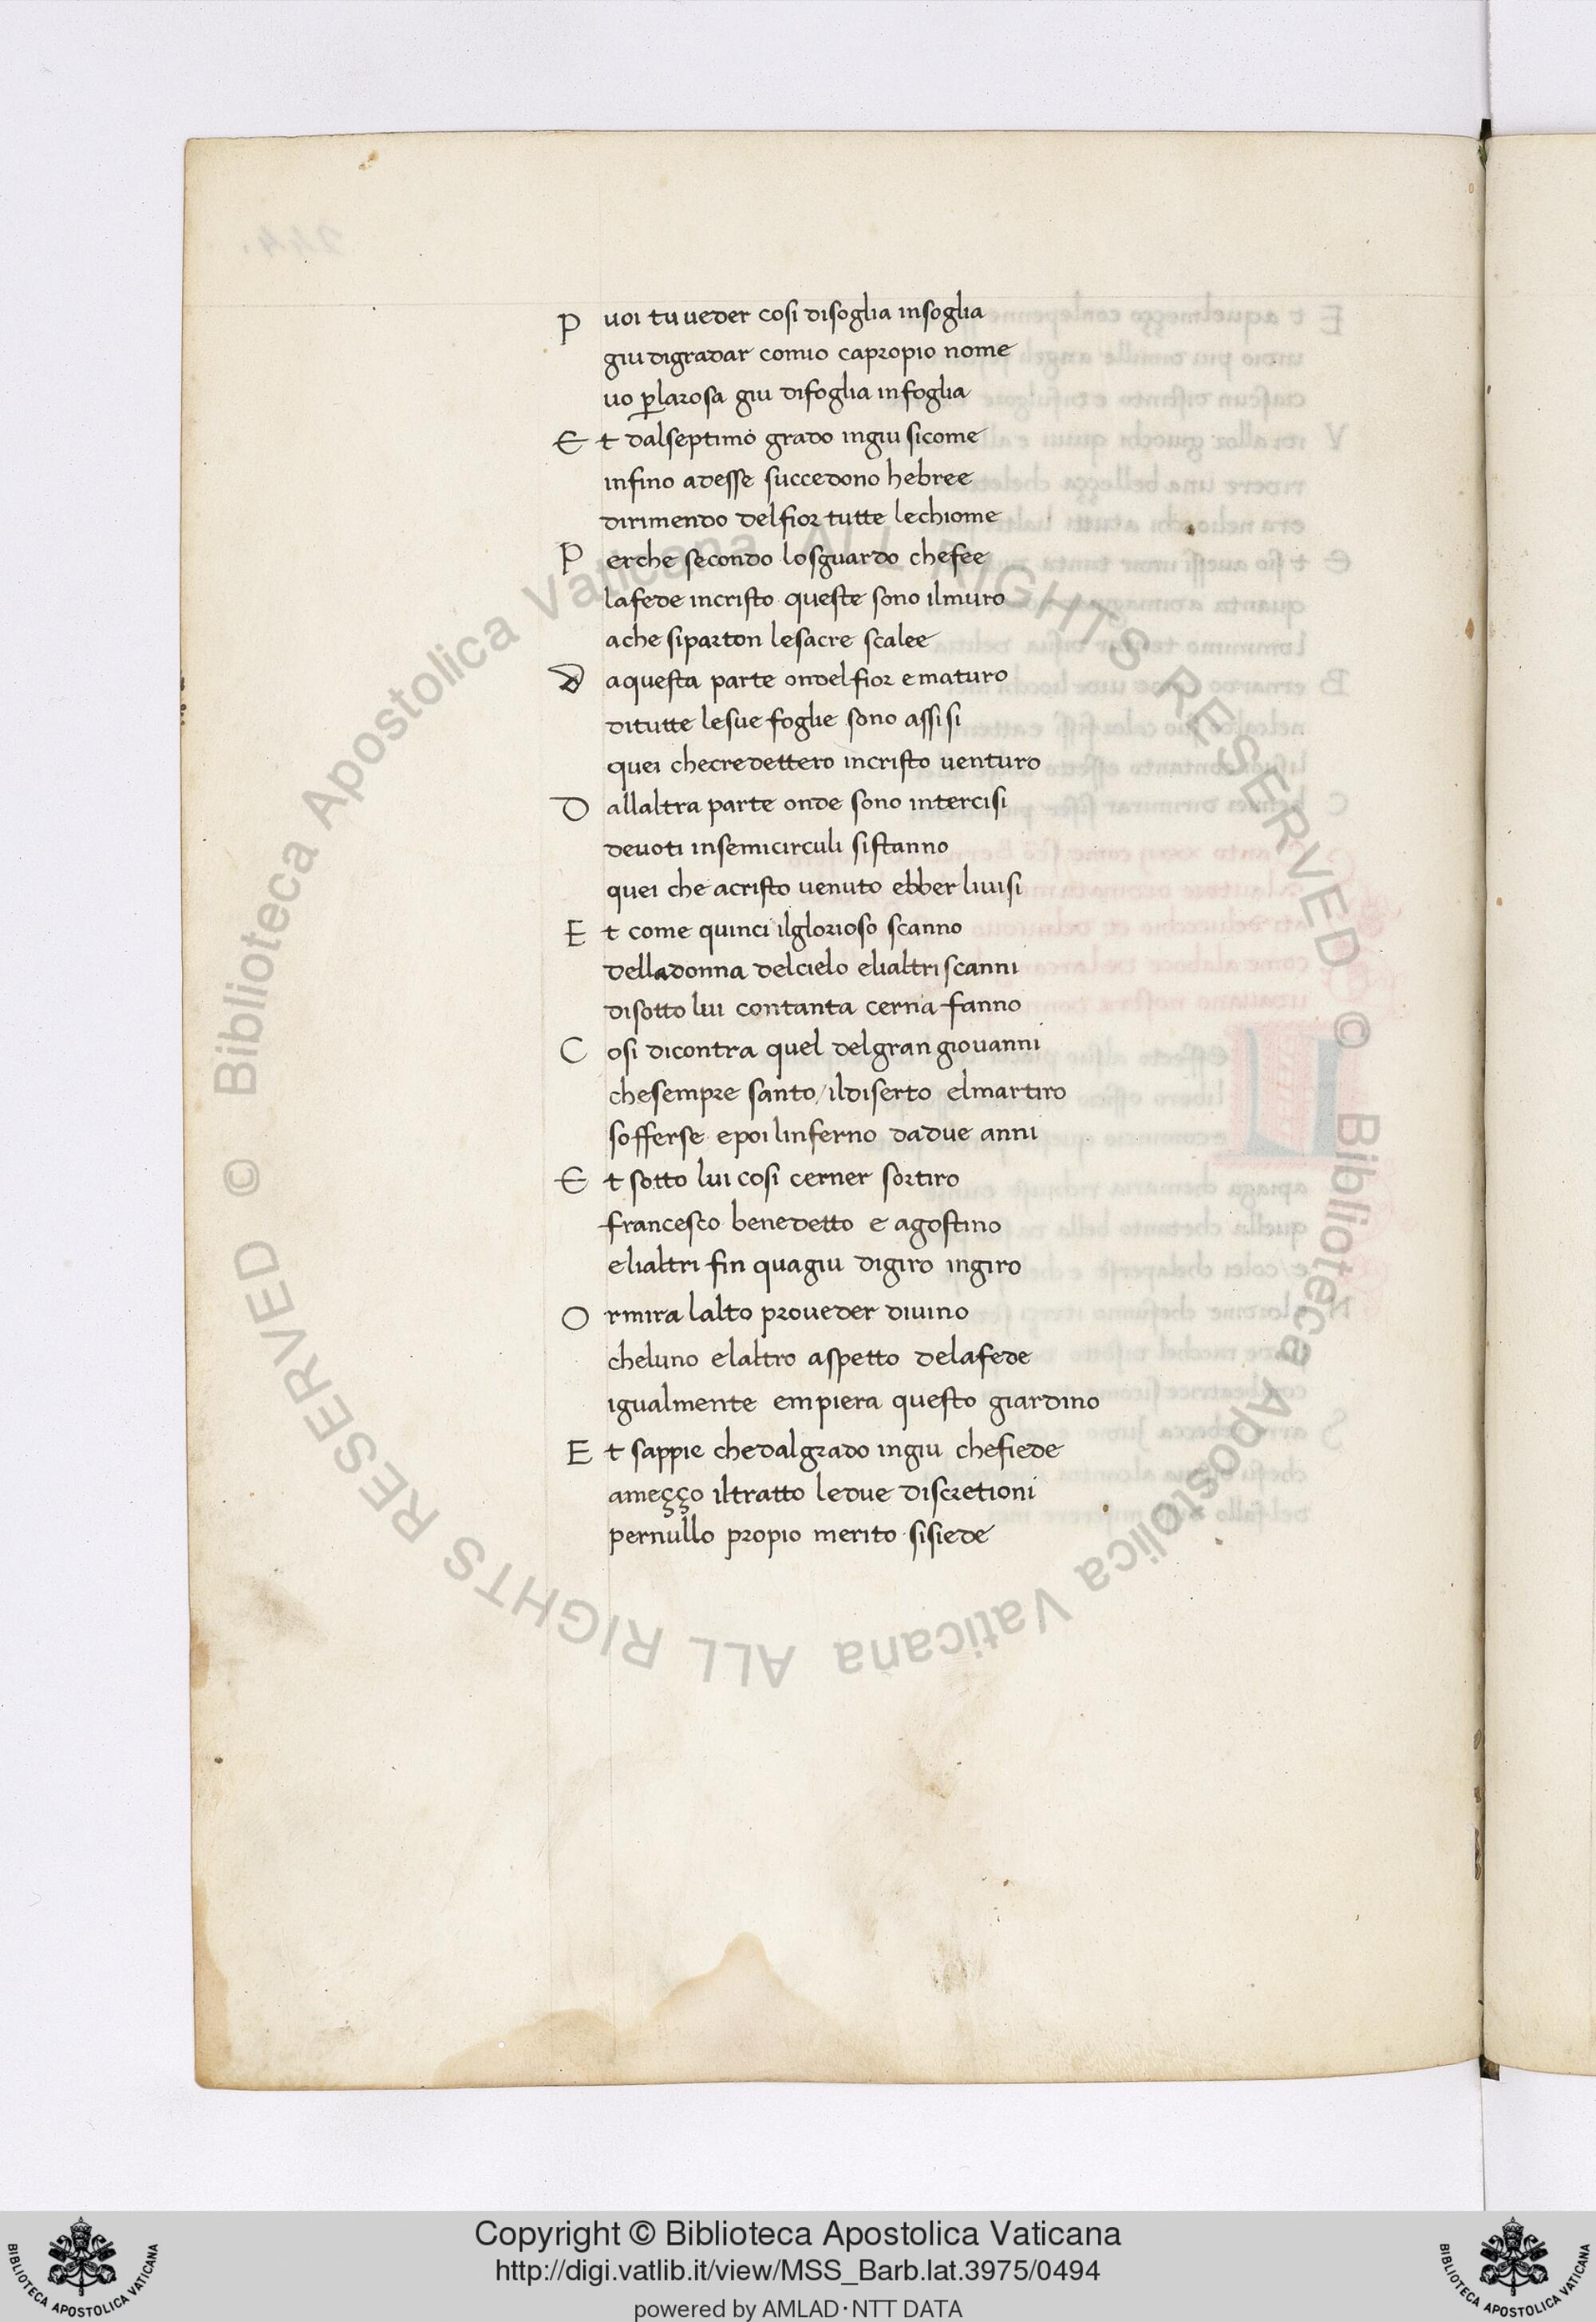 P uoi tu ueder cosi disoglia insoglia
giu digradar comio capropio nome
uo ꝑlarosa giu difoglia infoglia
E t dalseptimo grado ingiu sicome
infino adesse succedono hebree
dirimendo delfior tutte lechiome
P erche secondo losguardo chefee
lafede incristo queste sono ilmuro
ache siparton lesacre scalee
d aquesta parte ondelfior ematuro
ditutte lesue foglie sono assisi
quei checredettero incristo uenturo
D allaltra parte onde sono intercisi
deuoti insemicirculi sistanno
quei che acristo uenuto ebber liuisi
E t come quinci ilglorioso scanno
delladonna delcielo elialtri scanni
disotto lui contanta cerna fanno
C osi dicontra quel delgran giouanni
chesempre santo/ildiserto elmartiro
sofferse epoi linferno dadue anni
E t sotto lui cosi cerner sortiro
francesco benedetto e agostino
elialtri fin quagiu digiro ingiro
O rmira lalto proueder diuino
cheluno elaltro aspetto delafede
igualmente empiera questo giardino
E t sappie chedalgrado ingiu chefiede
ameççο iltratto ledue discretioni
pernullo propio merito sisiede
© Biblioteca Apostolica Vaticana ALL RIGHTS RESERVED © Biblioteca Apostolica Vaticana ALL RIGHTS RESERVED
Copyright © Biblioteca Apostolica Vaticana
http://digi.vatlib.it/view/MSS_Barb.lat.3975/0494
powered by AMLAD·NTT DATA
BIBLIOTECA APOSTOLICA VATICANA
BIBLIOTECA APOSTOLICA VATICANA